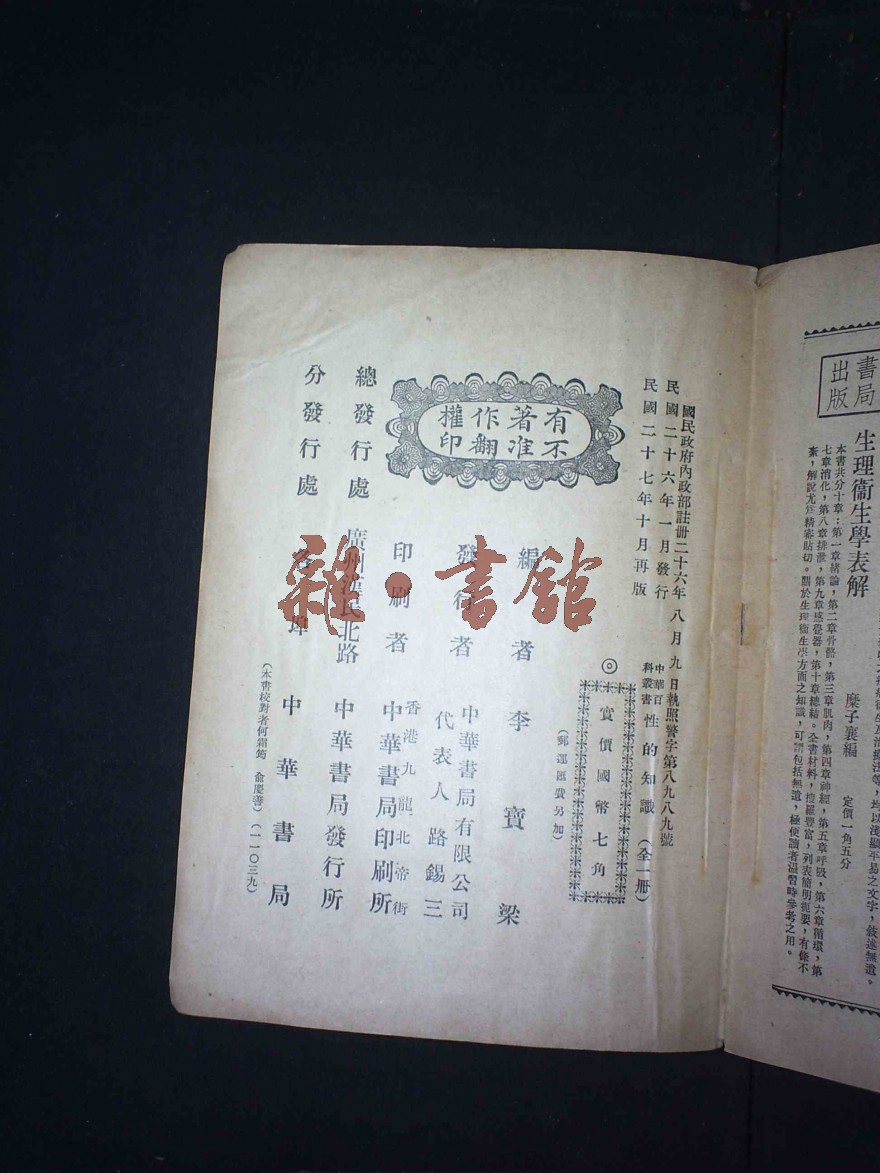 書局
出版
生理衞生學表解
糜子襄編
定價一角五分
本書共分十章：第一章緒論，第二章骨骼，第三章肌肉，第四章神經，第五章呼吸，第六章循環，第
七章消化，第八章排泄，第九章感覺器，第十章總結。全書材料，搜羅豐富，列表簡明扼要，有條不
紊，解說尤精審貼切。關於生理衞生學方面之知識，可謂包括無遺，極便讀者溫習時參考之用。
國民政府內政部註冊二十六年八月九日執照警字第八九八九號
民國二十六年一月發行
民國二十七年十月再版
中華百科叢書
性的知識
（全一冊）
◎
實價國幣七角
（郵運匯費另加）
有著作權
不准翻印
編者
李寶梁
發行者
中華書局有限公司
代表人路錫三
印刷者
香港九龍北帝街
中華書局印刷所
總發行處
廣州漢民北路
中華書局發行所
分發行處
各埠
中華書局
（本書校對者何霜筠 俞慶善）
（一一〇三九）
雜·書館